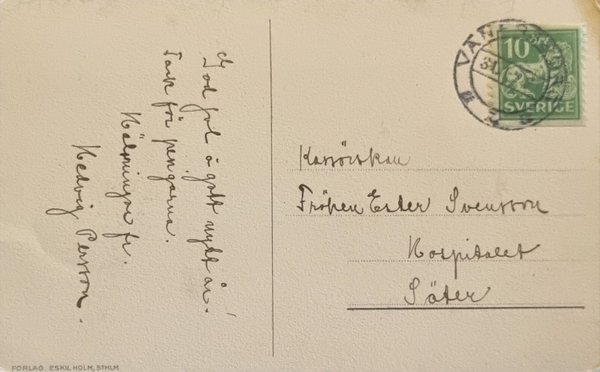 God jul o gott nytt år!
Tack för pengarna.
Hälsningar fr.
Hedvig Persson.
VÄNERSBORG
10
SVERIGE
Kassörskan
Fröken Ester Svensson
Hospitalet
Säter
FÖRLAG. ESKIL HOLM, STHLM.